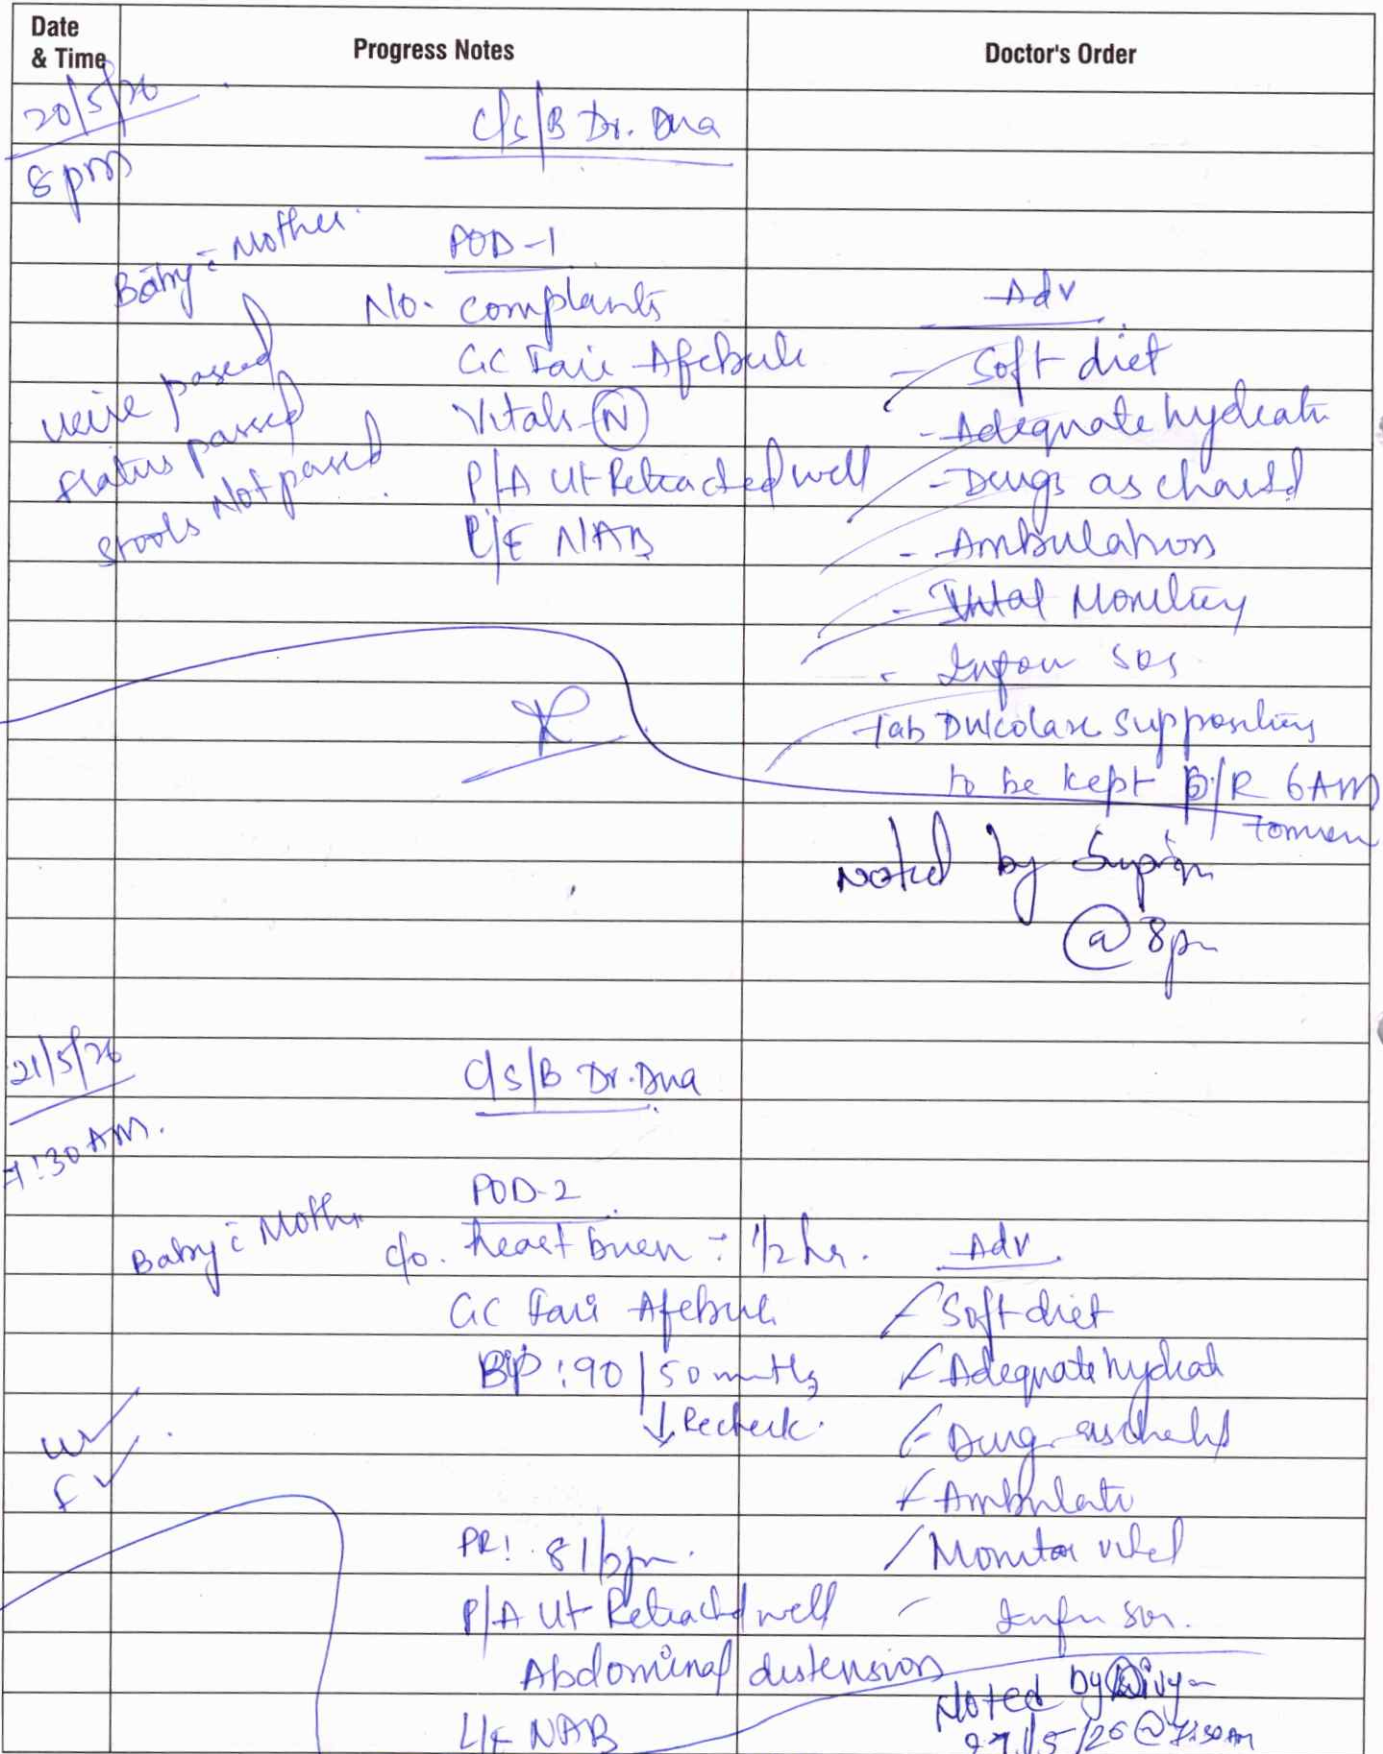 Date & Time
Progress Notes
Doctor's Order
20/5/26
8pm
C/S/B Dr. Dua
Baby c̄ Mother
POD-1
No. complaints
Adv
GC Fair Afebrile
- Soft diet
Urine passed
Vitals (N)
- Adequate hydratn
Flatus passed
P/A Ut Retracted well
- Drugs as charted
Stools Not passed
L/E NAB
- Ambulation
- Vital Monitoring
- Inform SOS
Tab Dulcolax Suppository
to be kept P/R 6AM
Noted by
@ 8pm
21/5/26
7:30 AM.
C/S/B Dr. Dua
POD-2
Baby c̄ Mother
c/o. heart burn : 1/2 hr.
Adv
GC Fair Afebrile
Soft diet
BP : 90/50 mmHg
Adequate hydrat
↓ Recheck.
Drug as charted
U ✓
F ✓
Ambulate
PR: 81 bpm.
Monitor vital
P/A Ut Retracted well
- Inform SOS.
Abdominal distension
Noted by Divya
L/E NAB
@ 7:30 AM